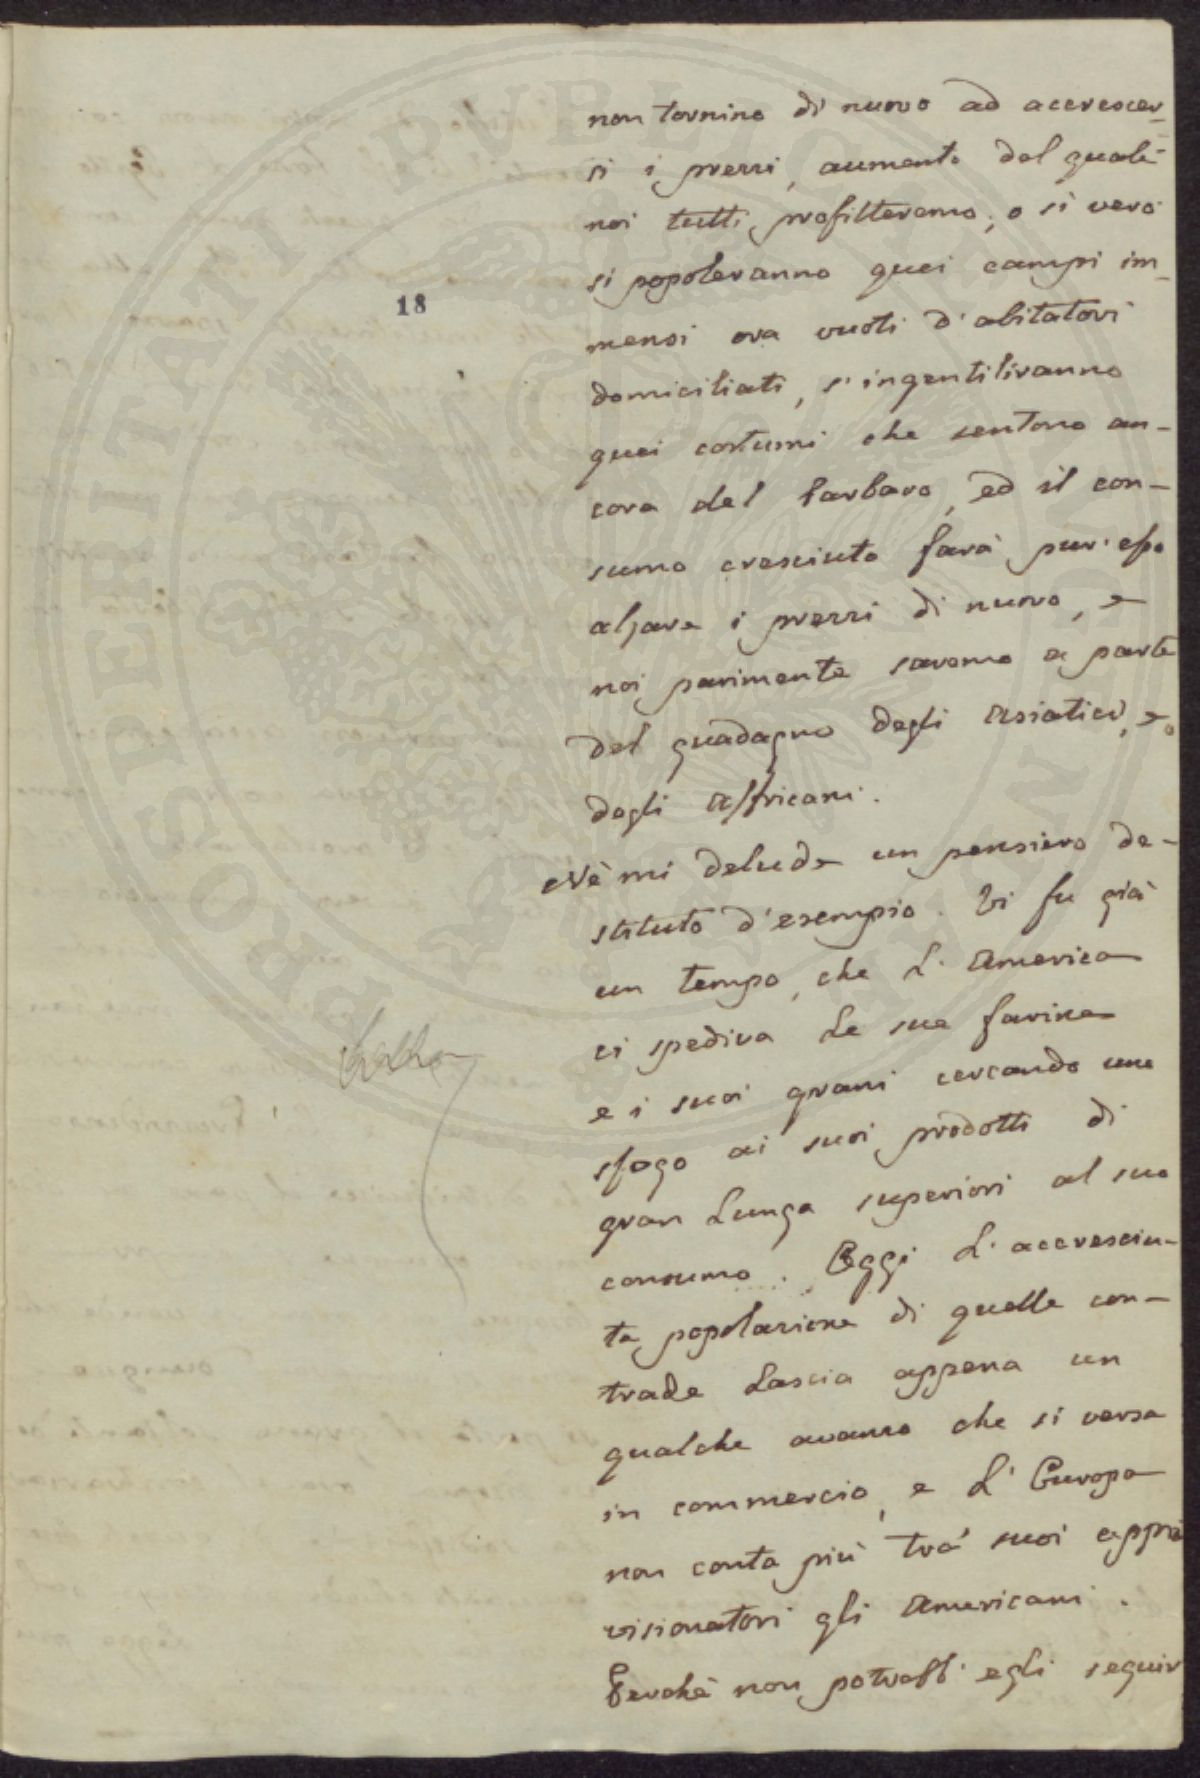 non tornino di nuovo ad accrescer-
si i prezzi, aumento del quale
noi tutti profitteremo, o si vero
si popoleranno quei campi im-
mensi ora vuoti d'abitatori
18
domiciliati, s'ingentiliranno
quei costumi che sentono an-
cora del barbaro, ed il con-
sumo cresciuto farà pur'esso
alzare i prezzi di nuovo, e
noi parimente saremo a parte
del guadagno degli Asiatici, e
degli Affricani.
Nè mi delude un pensiero de-
stituto d'esempio. Vi fu già
un tempo, che L'America
ci spediva Le sue farine
e i suoi grani cercando uno
sfogo ai suoi prodotti di
gran Lunga superiori al suo
consumo. Oggi L'accresciu-
ta popolazione di quelle con-
trade Lascia appena un
qualche avanzo che si versa
in commercio, e L'Europa
non conta più tra' suoi appro
visionatori gli Americani.
Perchè non potrebb'egli seguir
PROSPERITATI PVBLICAE AVGENDAE